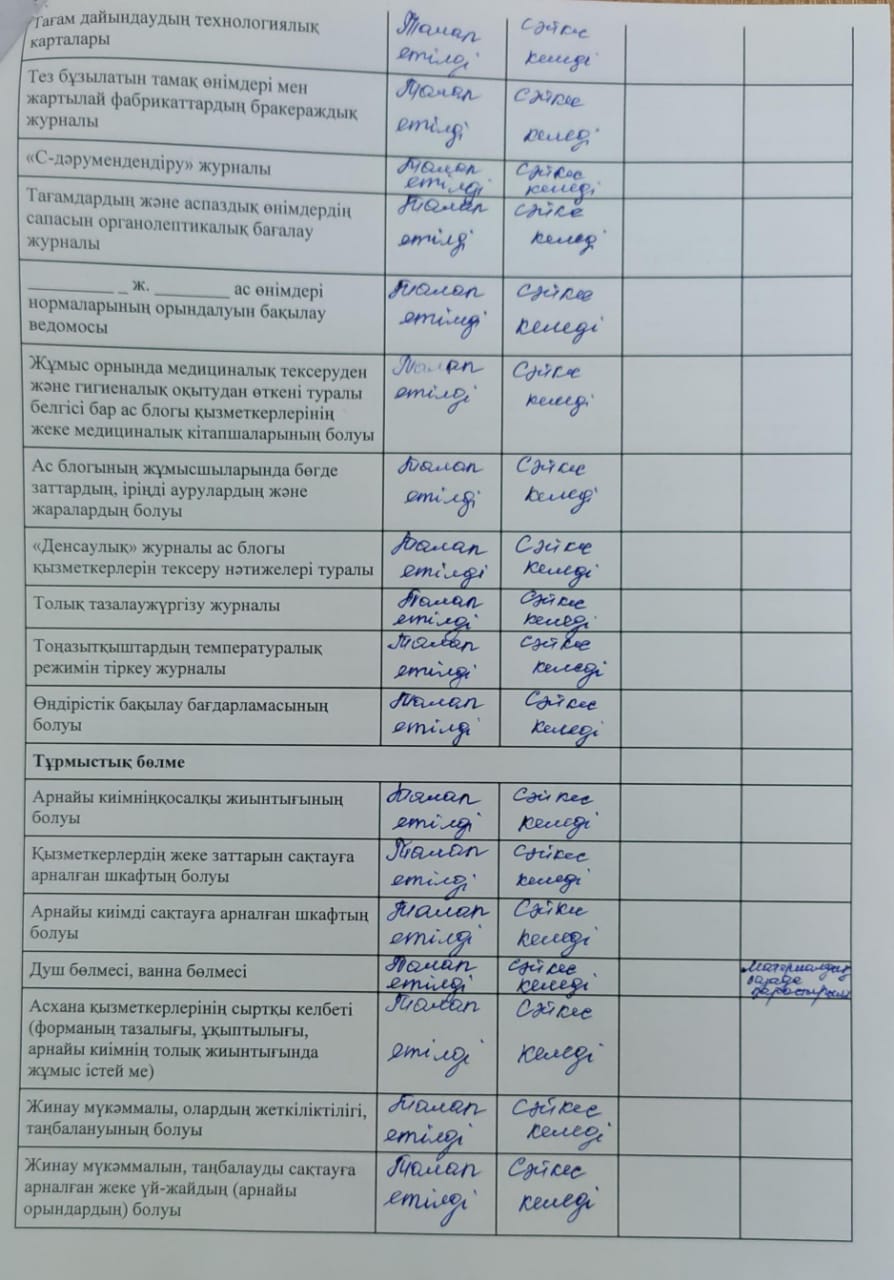 Тағам дайындаудың технологиялық
карталары
Талап
етілді
Сәйкес
келеді
Тез бұзылатын тамақ өнімдері мен
жартылай фабрикаттардың бракераждық
журналы
Талап
етілді
Сәйкес
келеді
«С-дәрумендендіру» журналы
Талап
етілді
Сәйкес
келеді
Тағамдардың және аспаздық өнімдердің
сапасын органолептикалық бағалау
журналы
Талап
етілді
Сәйкес
келеді
__________ _ ж. _________ ас өнімдері
нормаларының орындалуын бақылау
ведомосы
Талап
етілді
Сәйкес
келеді
Жұмыс орнында медициналық тексеруден
және гигиеналық оқытудан өткені туралы
белгісі бар ас блогы қызметкерлерінің
жеке медициналық кітапшаларының болуы
Талап
етілді
Сәйкес
келеді
Ас блогының жұмысшыларында бөгде
заттардың, іріңді аурулардың және
жаралардың болуы
Талап
етілді
Сәйкес
келеді
«Денсаулық» журналы ас блогы
қызметкерлерін тексеру нәтижелері туралы
Талап
етілді
Сәйкес
келеді
Толық тазалаужүргізу журналы
Талап
етілді
Сәйкес
келеді
Тоңазытқыштардың температуралық
режимін тіркеу журналы
Талап
етілді
Сәйкес
келеді
Өндірістік бақылау бағдарламасының
болуы
Талап
етілді
Сәйкес
келеді
Тұрмыстық бөлме
Арнайы киімніңқосалқы жиынтығының
болуы
Талап
етілді
Сәйкес
келеді
Қызметкерлердің жеке заттарын сақтауға
арналған шкафтың болуы
Талап
етілді
Сәйкес
келеді
Арнайы киімді сақтауға арналған шкафтың
болуы
Талап
етілді
Сәйкес
келеді
Душ бөлмесі, ванна бөлмесі
Талап
етілді
Сәйкес
келеді
Асхана қызметкерлерінің сыртқы келбеті
(форманың тазалығы, ұқыптылығы,
арнайы киімнің толық жиынтығында
жұмыс істей ме)
Талап
етілді
Сәйкес
келеді
Жинау мүкәммалы, олардың жеткіліктілігі,
таңбалануының болуы
Талап
етілді
Сәйкес
келеді
Жинау мүкәммалын, таңбалауды сақтауға
арналған жеке үй-жайдың (арнайы
орындардың) болуы
Талап
етілді
Сәйкес
келеді